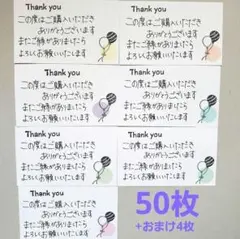 Thank you
この度はご購入いただき
ありがとうございます
またご縁がありましたら
よろしくお願いいたします
Thank you
この度はご購入いただき
ありがとうございます
またご縁がありましたら
よろしくお願いいたします
Thank you
この度はご購入いただき
ありがとうございます
またご縁がありましたら
よろしくお願いいたします
Thank you
この度はご購入いただき
ありがとうございます
またご縁がありましたら
よろしくお願いいたします
Thank you
この度はご購入いただき
ありがとうございます
またご縁がありましたら
よろしくお願いいたします
Thank you
この度はご購入いただき
ありがとうございます
またご縁がありましたら
よろしくお願いいたします
Thank you
この度はご購入いただき
ありがとうございます
またご縁がありましたら
よろしくお願いいたします
50枚
+おまけ4枚